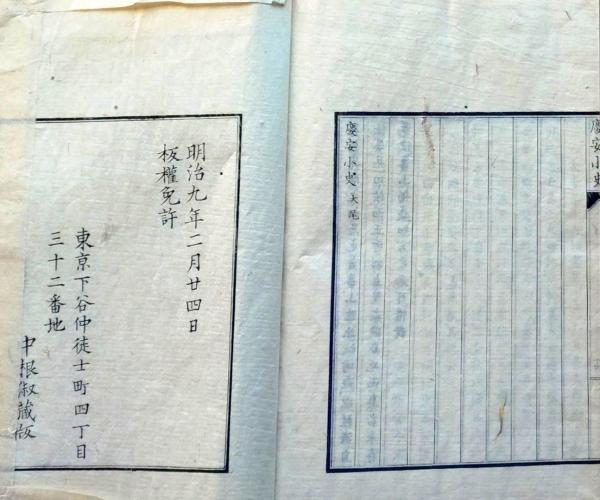 慶安小史
慶安小史 大尾
明治九年二月廿四日
板權免許
東京下谷仲徒士町四丁目
三十二番地
中根淑藏版